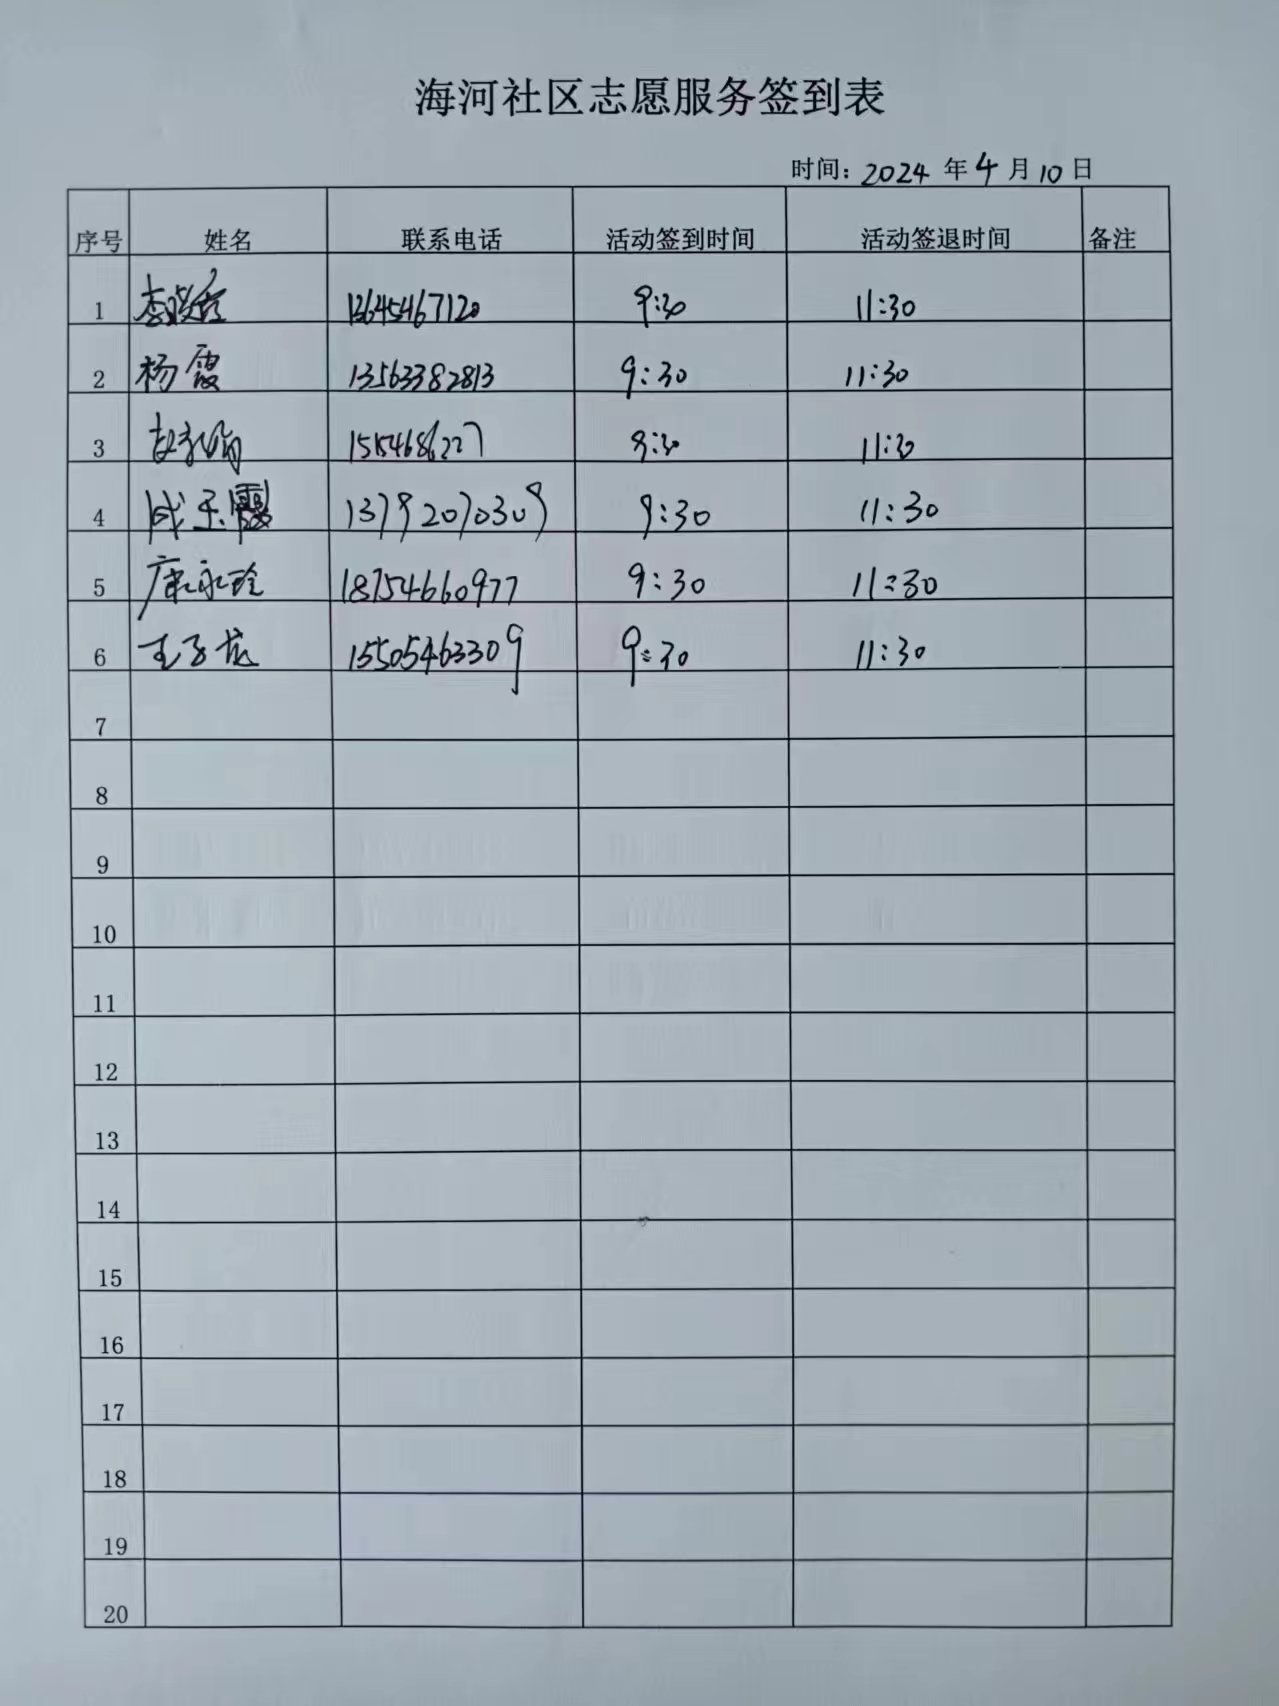 海河社区志愿服务签到表
时间: 2024 年 4 月 10 日
序号 姓名 联系电话 活动签到时间 活动签退时间 备注
1 13645467120 9:30 11:30
2 杨霞 13563382813 9:30 11:30
3 9:30 11:30
4 13792070309 9:30 11:30
5 康永玲 18754660977 9:30 11:30
6 15505463309 9:30 11:30
7
8
9
10
11
12
13
14
15
16
17
18
19
20